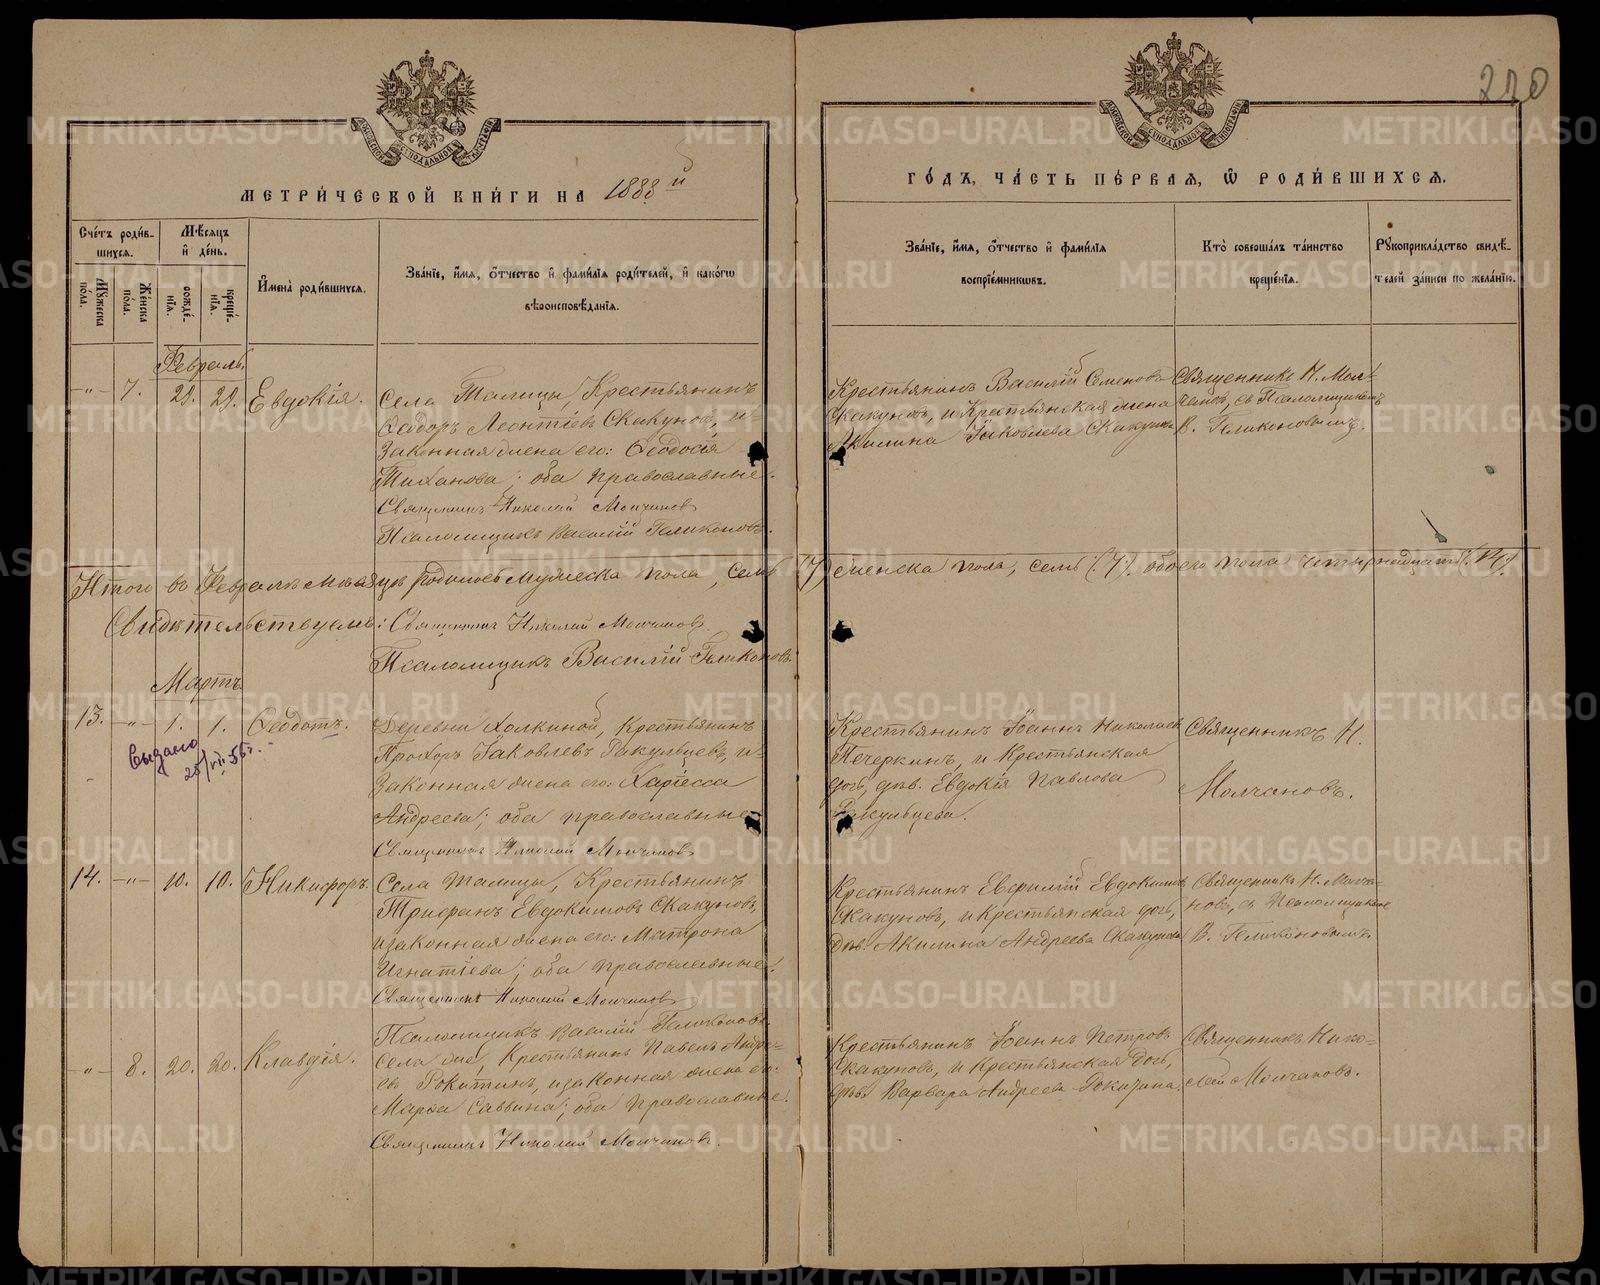 220
МЕТРИ́ЧЕСКОЙ КНИ́ГИ НА 1888 й
ГО́ДЪ, ЧА́СТЬ ПЕ́РВАЯ, Ѡ҆ РОДИ́ВШИХСЯ.
Сче́тъ роди́в-
шихся.
Мѣ́сяцъ
и҆ де́нь.
Мꙋ́жеска
по́ла.
Же́нска
по́ла.
рожде́-
нїя.
креще́-
нїя.
И҆мена̀ роди́вшихся.
Зва́нїе, и҆́мя, ѻ҆́тчество и҆ фами́лїя роди́телей, и҆ како́гѡ
вѣроисповѣ́данїя.
Зва́нїе, и҆́мя, ѻ҆́тчество и҆ фами́лїя
воспрїе́мникѡвъ.
Кто̀ соверша́лъ та́инство
креще́нїя.
Рꙋкоприкла́дство свидѣ́-
телей за́писи по жела́нїю.
Февраль.
-"- 7. 29. 29. Евдокія.
Села Талицы, Крестьянинъ
Ѳедоръ Леонтіевъ Скакуновъ, и
Законная жена его: Ѳеодосія
Тиханова; оба православные.
Священникъ Николай Молчановъ
Псаломщикъ Василій Геликоновъ.
Крестьянинъ Василій Семеновъ
Скакуновъ, и Крестьянская жена
Акилина Іаковлева Скакунова
Священникъ Н. Мол-
чановъ, съ Псаломщикомъ
В. Геликоновымъ.
Итого въ Февралѣ мѣсяцѣ родилось Мужеска пола, семь (7) женска пола, семь (7). обоего пола четырнадцать (14)
Свидѣтельствуемъ: Священникъ Николай Молчановъ.
Псаломщикъ Василій Геликоновъ.
Мартъ.
13. -"- 1. 1. Ѳеодотъ.
Выдано
28/VII-55г.
Деревни Холкиной, Крестьянинъ
Прохоръ Іаковлевъ Ракульцевъ, и
Законная жена его: Харіесса
Андреева; оба православные
Священникъ Николай Молчановъ
Крестьянинъ Іоаннъ Николаевъ
Печеркинъ, и Крестьянская
дочь, дѣв. Евдокія Павлова
Ракульцева.
Священникъ Н.
Молчановъ.
14. -"- 10. 10. Никифоръ.
Села Талицы, Крестьянинъ
Трифанъ Евдокимовъ Скакуновъ,
и законная жена его: Матрона
Игнатіева; оба православные.
Священникъ Николай Молчановъ
Псаломщикъ Василій Геликоновъ.
Крестьянинъ Евфимій Евдокимовъ
Скакуновъ, и Крестьянская дочь,
дѣв. Акилина Андреева Скакунова
Священникъ Н. Молча-
новъ, съ Псаломщикомъ
В. Геликоновымъ.
-"- 8. 20. 20. Клавдія.
Села же, Крестьянинъ Павелъ Андре-
евъ Рокитинъ, и законная жена его:
Марѳа Саввина; оба православные.
Священникъ Николай Молчановъ.
Крестьянинъ Іоаннъ Петровъ
Скакуновъ, и Крестьянская дочь,
дѣв. Варвара Андреева Рокитина.
Священникъ Нико-
лай Молчановъ.
METRIKI.GASO-URAL.RU